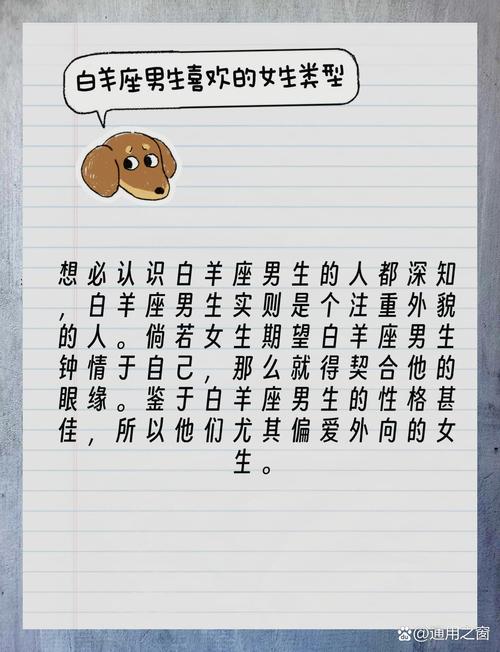 白羊座男生喜欢的女生类型
想必认识白羊座男生的人都深知
，白羊座男生实则是个注重外貌
的人。倘若女生期望白羊座男生
钟情于自己，那么就得契合他的
眼缘。鉴于白羊座男生的性格甚
佳，所以他们尤其偏爱外向的女
生。
@通用之窗